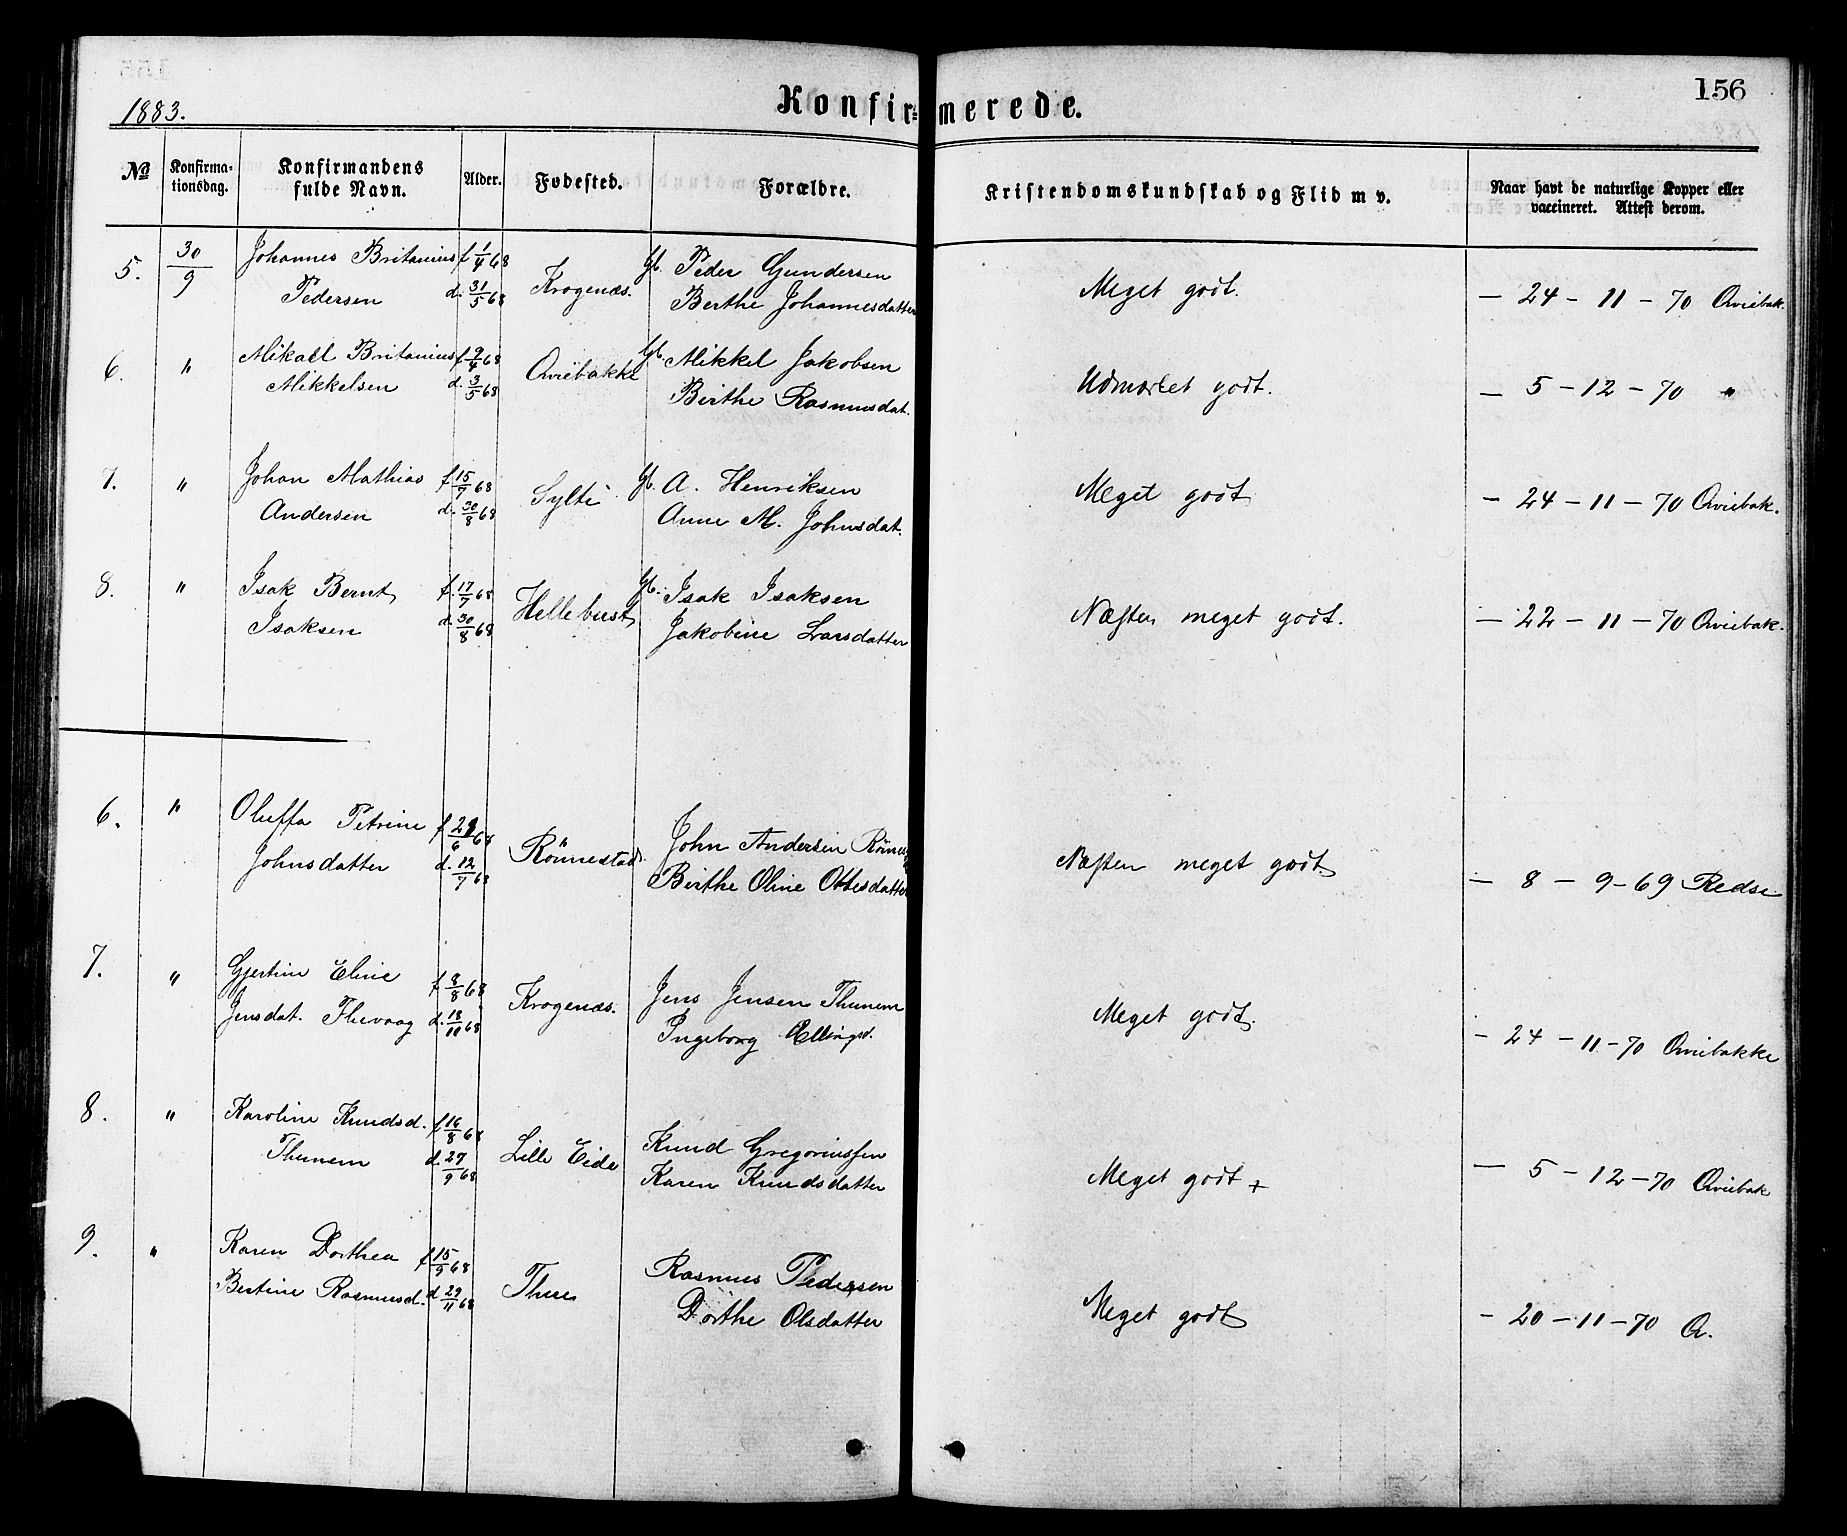 156
1883.
Konfirmerede.
No
Konfirma-
tionsdag.
Konfirmandens
fulde Navn.
Alder.
Fødested.
Forældre.
Kristendomskundskab og Flid m v.
Naar havt de naturlige Kopper eller
vaccineret. Attest derom.
5. 30/9 Johannes Britanius f 1/4 68 Krogenæs. Gb. Peder Gundersen Meget godt. — 24 - 11 - 70 Qviebak.
Pedersen d. 31/5 68 Berthe Johannesdatter
6. " Mikael Britanius f 9/4 68 Qviebakke Gb. Mikkel Jakobsen Udmærket godt. — 5 - 12 - 70 "
Mikkelsen d. 3/5 68 Birthe Rasmusdat.
7. " Johan Mathias f. 15/7 68 Sylte Gb. A. Henriksen Meget godt — 24 - 11 - 70 Qviebak.
Andersen d. 30/8 68 Anne M. Johnsdat.
8. " Isak Bernt f. 17/7 68 Hellebust Gb. Isak Isaksen Næsten meget godt. — 22 - 11 - 70 Qviebak.
Isaksen d. 30/8 68 Jakobine Larsdatter
6. " Oluffa Petrine f 29/6 68 Rönnestad. John Andersen Næsten meget godt — 8 - 9 - 69
Johnsdatter d. 12/7 68 Birthe Oline Ottesdatter
7. " Gjertine Eline f 8/8 68 Krogenæs. Jens Jensen Thunem Meget godt. — 24 - 11 - 70 Qviebakke
Jensdat. d. 18/11 68 Ingeborg Ellingsd.
8. " Karoline Knudsd. f 16/8 68 Lille Eide Knud Gregoriussen Meget godt + — 5 - 12 - 70 Qviebak
Thunem d. 27/9 68 Karen Knudsdatter
9. " Karen Dorthea f 15/9 68 Thue Rasmus Pedersen Meget godt — 20 - 11 - 70 Q.
Bertine Rasmusd. d 29/11 68 Dorthe Olsdatter